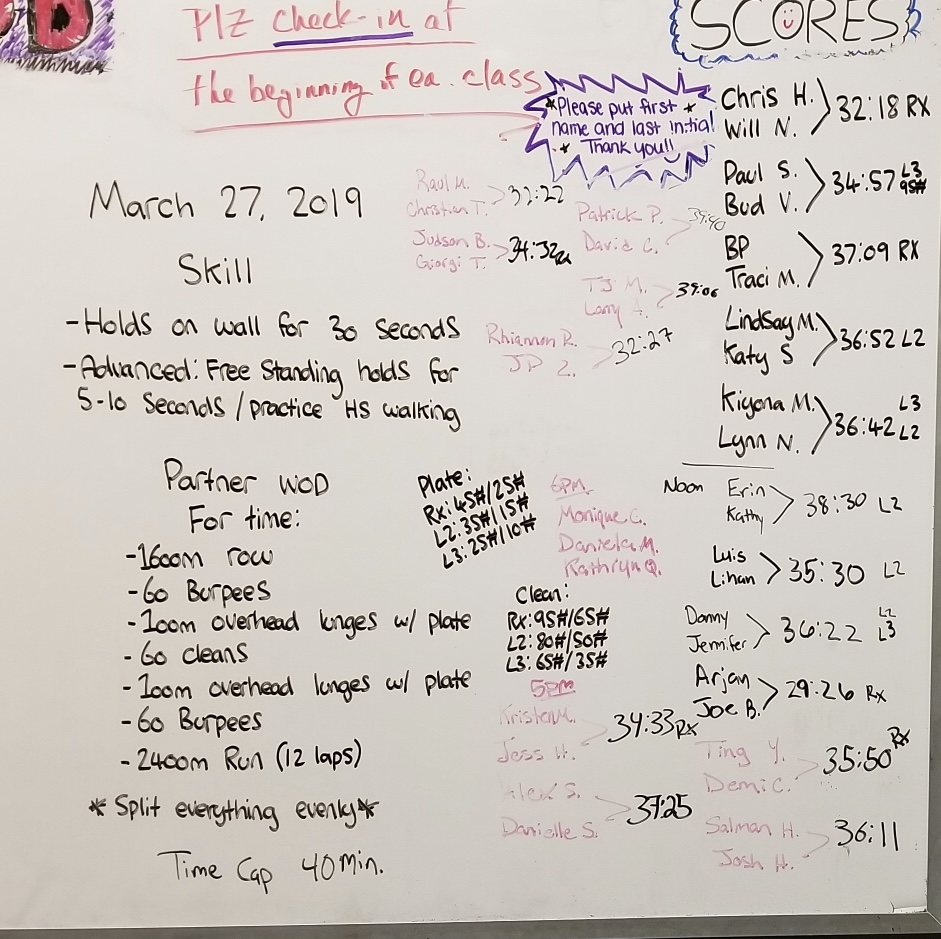 Plz check-in at
the beginning of ea. class
*Please put first *
name and last initial
* Thank you!!
SCORES
March 27, 2019
Skill
-Holds on wall for 30 seconds
-Advanced: Free Standing holds for
5-10 Seconds / practice HS walking
Partner WOD
For time:
-1600m row
-60 Burpees
-100m overhead lunges w/ plate
-60 cleans
-100m overhead lunges w/ plate
-60 Burpees
-2400m Run (12 laps)
*Split everything evenly*
Time Cap 40 Min.
Raul M.
Christian T. > 32:22
Judson B.
Giorgi T. > 34:32
Patrick P.
David C. > 39:40
TJ M.
Larry > 39:06
Rhiannon R.
JP Z. > 32:27
Plate:
Rx: 45#/25#
L2: 35#/15#
L3: 25#/10#
6PM
Monique C.
Daniela M.
Kathryn Q.
Clean:
Rx: 95#/65#
L2: 80#/50#
L3: 65#/35#
5PM
Kristen M.
Jess H. > 34:33 Rx
Alex S.
Danielle S. > 37:25
Chris H.
Will N. > 32:18 RX
Paul S.
Bud V. > 34:57 L3 95#
BP
Traci M. > 37:09 RX
Lindsay M.
Katy S > 36:52 L2
Kiyona M. L3
Lynn N. > 36:42 L2
Noon Erin
Kathy > 38:30 L2
Luis
Lihan > 35:30 L2
Danny L2
Jennifer > 36:22 L3
Arjan
Joe B. > 29:26 Rx
Ting Y.
Demi C. > 35:50 Rx
Salman H.
Josh H. > 36:11